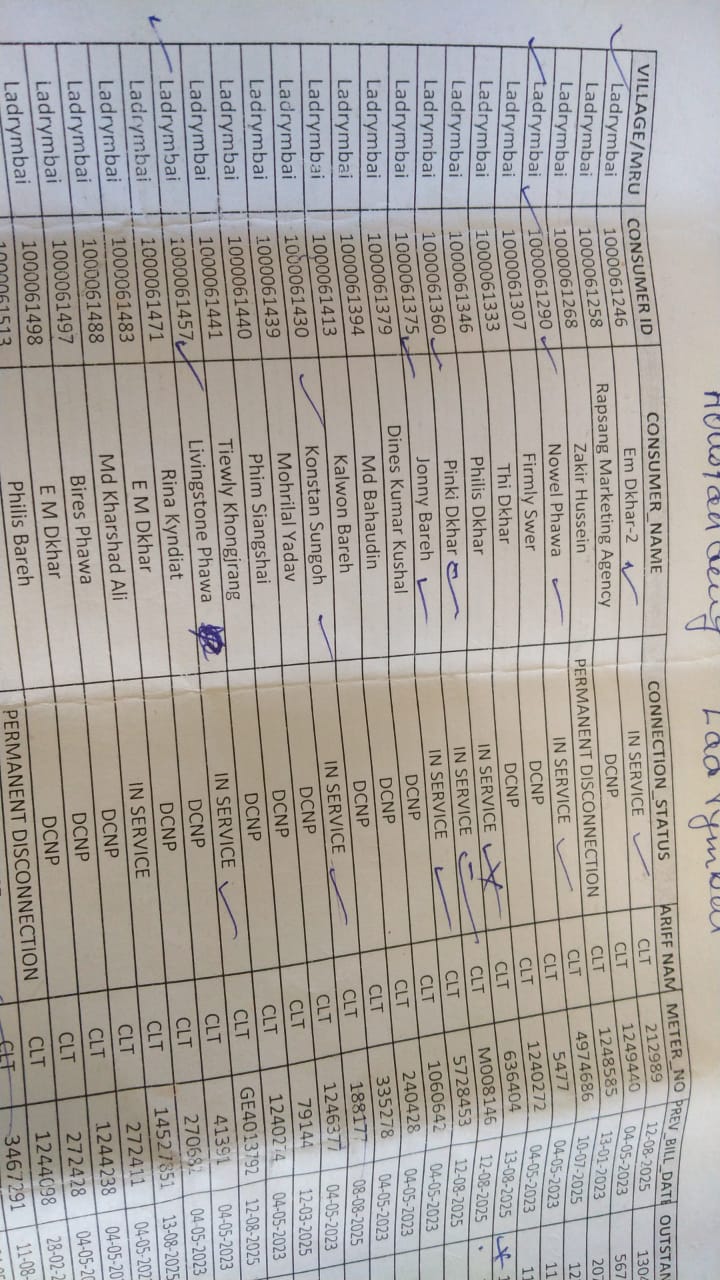 VILLAGE/MRU CONSUMER ID CONSUMER_NAME CONNECTION_STATUS ARIFF NAM METER_NO PREV_BILL_DATE OUTSTAN
Ladrymbai 1000061246 Em Dkhar-2 IN SERVICE CLT 212989 12-08-2025 130
Ladrymbai 1000061258 Rapsang Marketing Agency DCNP CLT 1249440 04-05-2023 567
Ladrymbai 1000061268 Zakir Hussein PERMANENT DISCONNECTION CLT 1248585 13-01-2023 20
Ladrymbai 1000061290 Nowel Phawa IN SERVICE CLT 4974686 10-07-2025 12
Ladrymbai 1000061307 Firmly Swer DCNP CLT 5477 04-05-2023 11
Ladrymbai 1000061333 Thi Dkhar DCNP CLT 1240272 04-05-2023 11
Ladrymbai 1000061346 Philis Dkhar IN SERVICE CLT 636404 13-08-2025
Ladrymbai 1000061360 Pinki Dkhar IN SERVICE CLT M008146 12-08-2025
Ladrymbai 1000061375 Jonny Bareh IN SERVICE CLT 5728453 12-08-2025
Ladrymbai 1000061379 Dines Kumar Kushal DCNP CLT 1060642 04-05-2023
Ladrymbai 1000061394 Md Bahaudin DCNP CLT 240428 04-05-2023
Ladrymbai 1000061413 Kalwon Bareh DCNP CLT 335278 04-05-2023
Ladrymbai 1000061430 Konstan Sungoh IN SERVICE CLT 188177 08-08-2025
Ladrymbai 1000061439 Mohrilal Yadav DCNP CLT 1246377 04-05-2023
Ladrymbai 1000061440 Phim Siangshai DCNP CLT 79144 12-03-2025
Ladrymbai 1000061441 Tiewly Khongjrang DCNP CLT 1240274 04-05-2023
Ladrymbai 1000061457 Livingstone Phawa IN SERVICE CLT GE4013792 12-08-2025
Ladrymbai 1000061471 Rina Kyndiat DCNP CLT 41391 04-05-2023
Ladrymbai 1000061483 E M Dkhar DCNP CLT 270682 04-05-2023
Ladrymbai 1000061488 Md Kharshad Ali IN SERVICE CLT 14527851 13-08-2025
Ladrymbai 1000061497 Bires Phawa DCNP CLT 272411 04-05-202
Ladrymbai 1000061498 E M Dkhar DCNP CLT 1244238 04-05-20
Ladrymbai 1000061513 Philis Bareh DCNP CLT 272428 04-05-2
DCNP CLT 1244098 28-02-2
PERMANENT DISCONNECTION CLT 3467291 11-08-